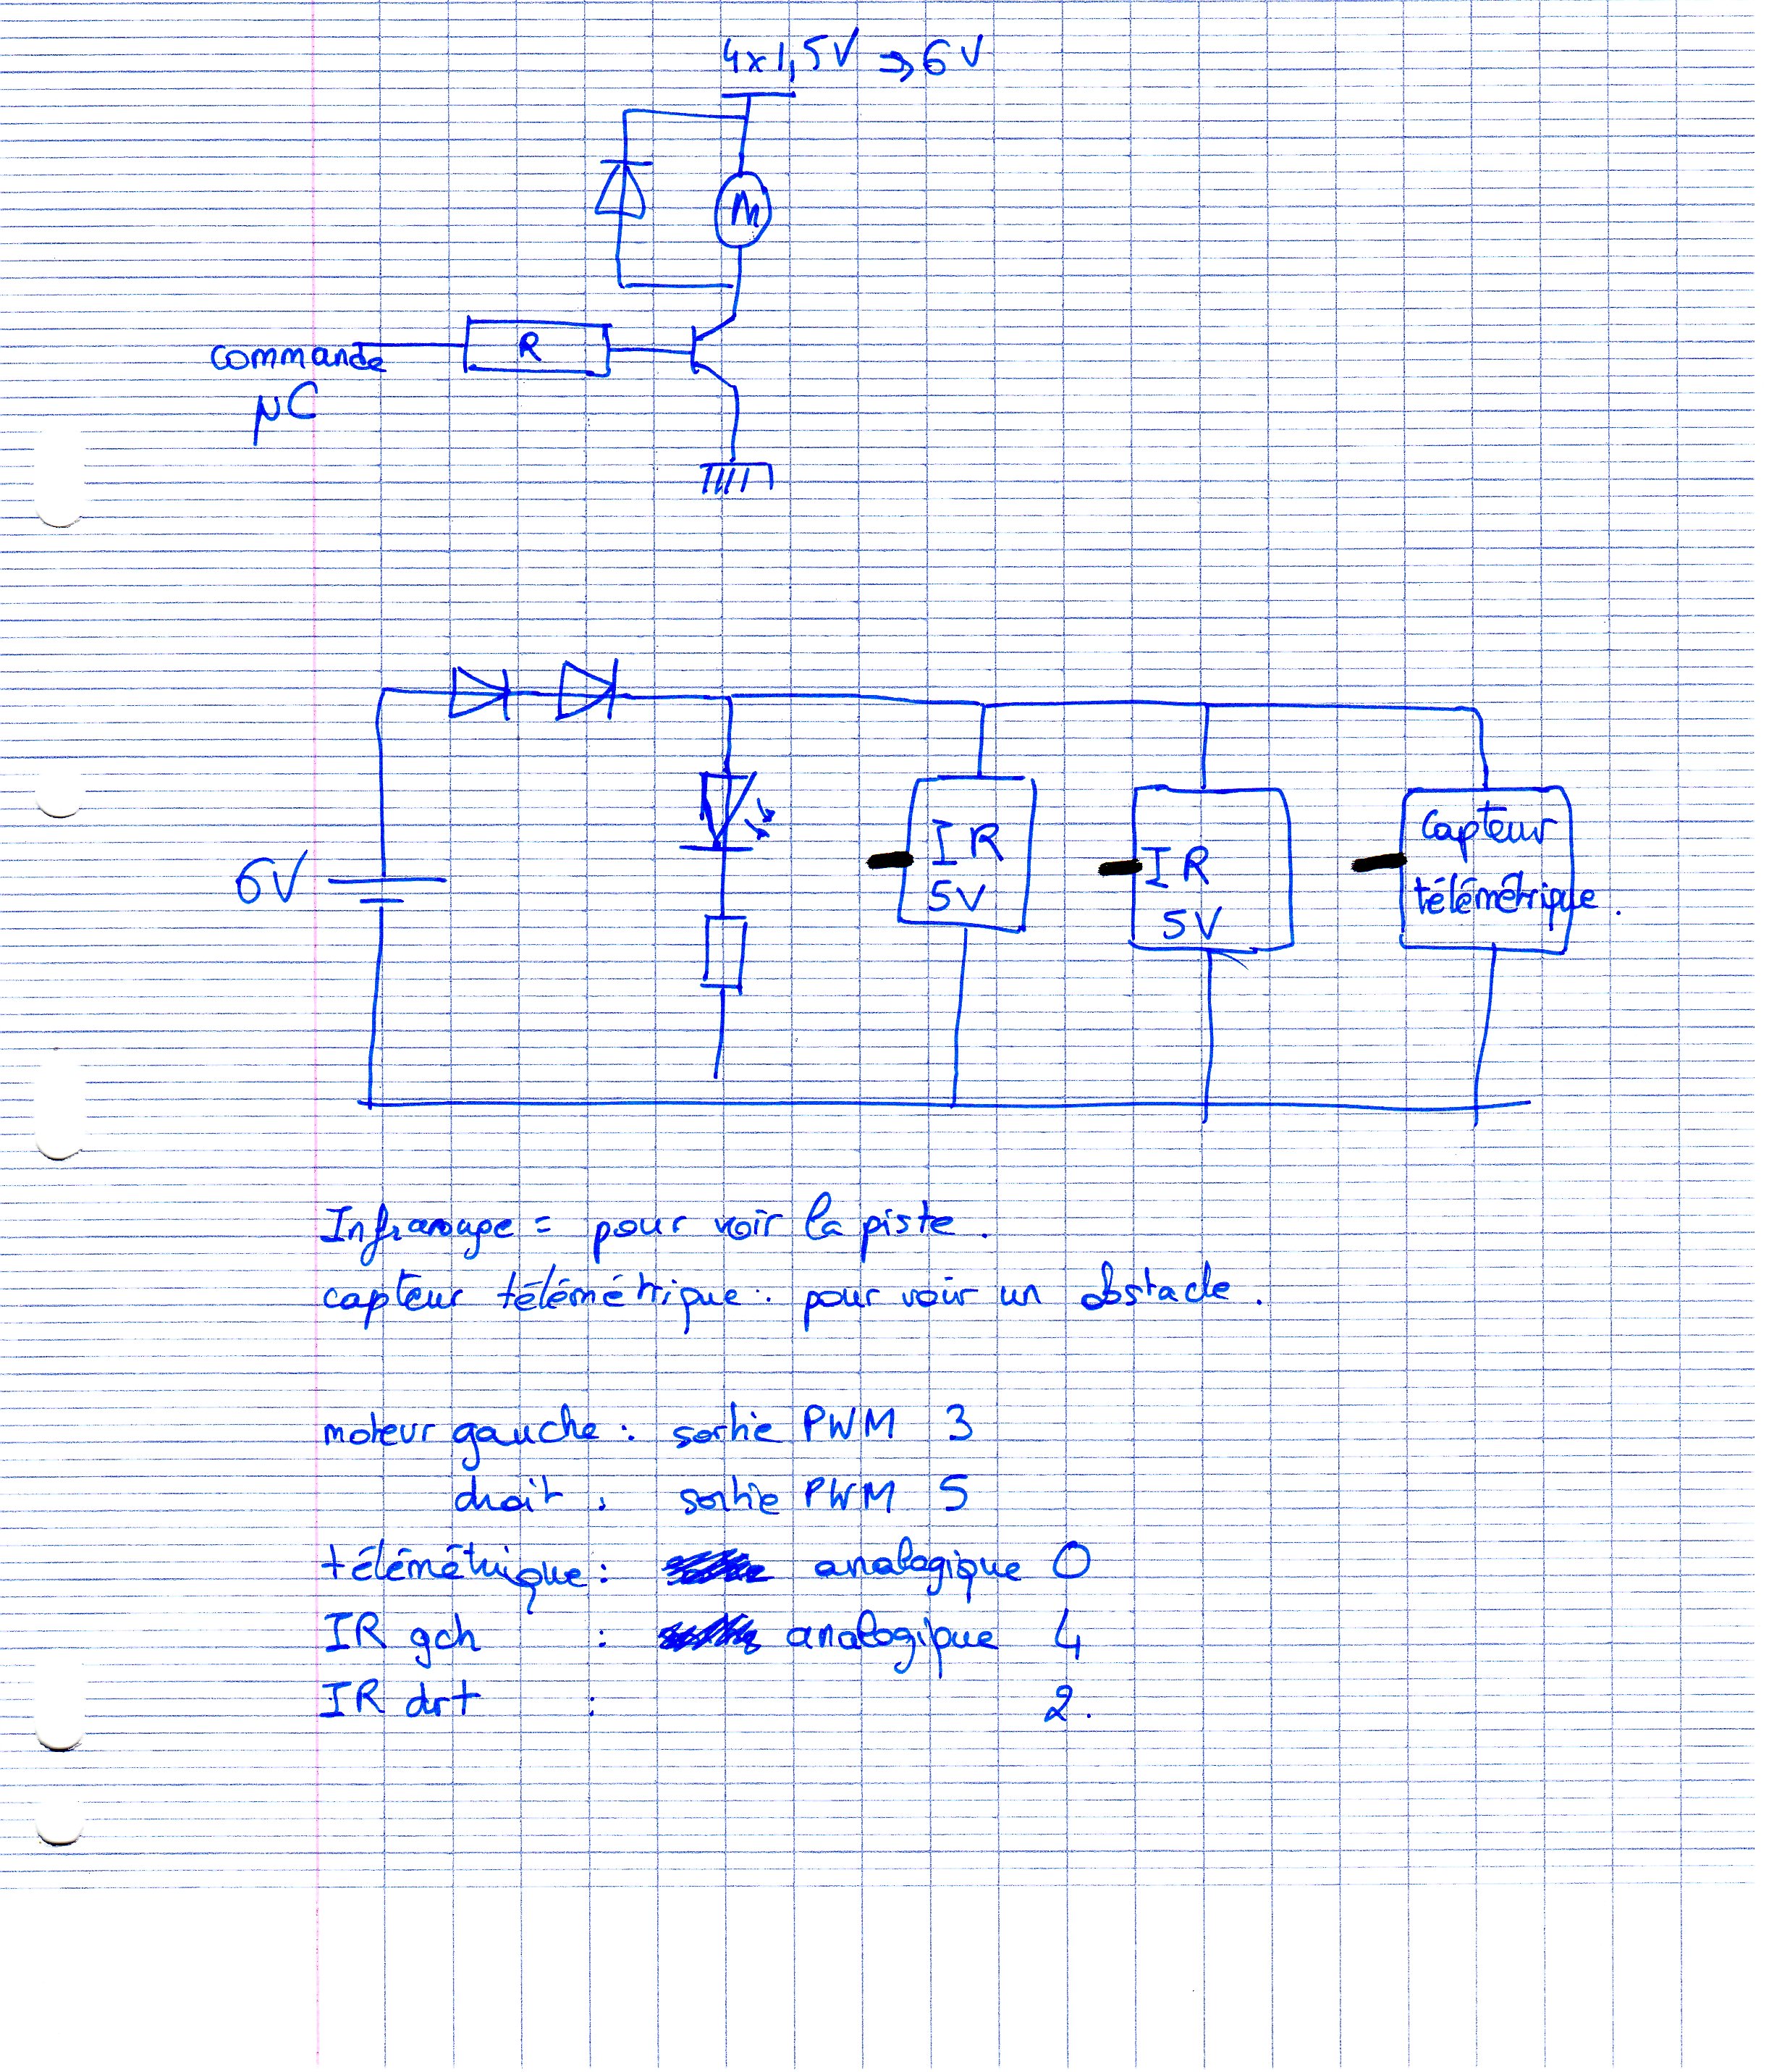 4x1,5V ⇒ 6V
M
R
commande
µC
6V
IR
5V
IR
5V
capteur
télémétrique.
Infrarouge = pour voir la piste.
capteur télémétrique : pour voir un obstacle.
moteur gauche : sortie PWM 3
droit : sortie PWM 5
télémétrique : analogique 0
IR gch : analogique 4
IR drt : 2.